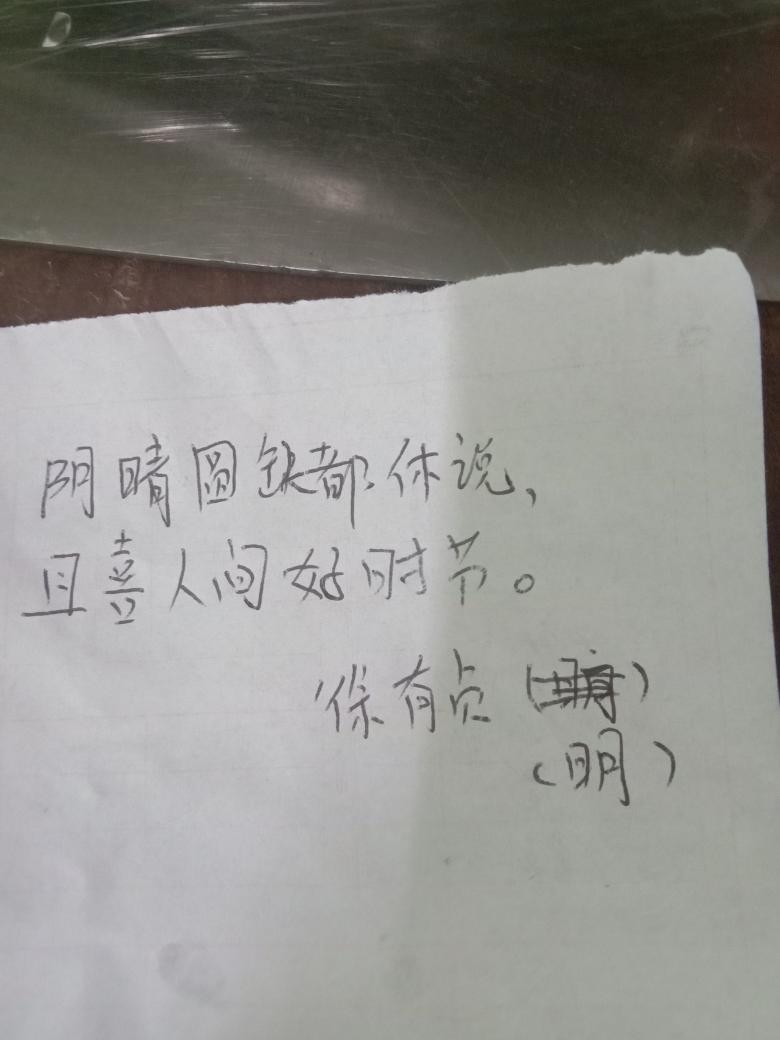 阴晴圆缺都休说，
且喜人间好时节。
徐有贞（）
（明）